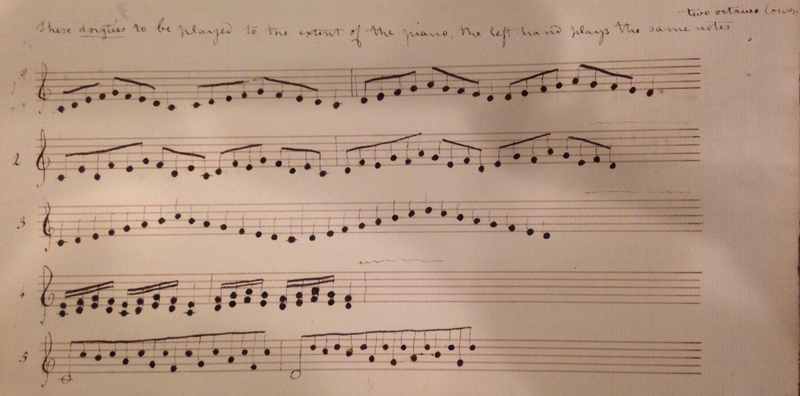 two octaves lower
These doigtées to be played to the extent of the piano, the left hand plays the same notes
2
3
4
5